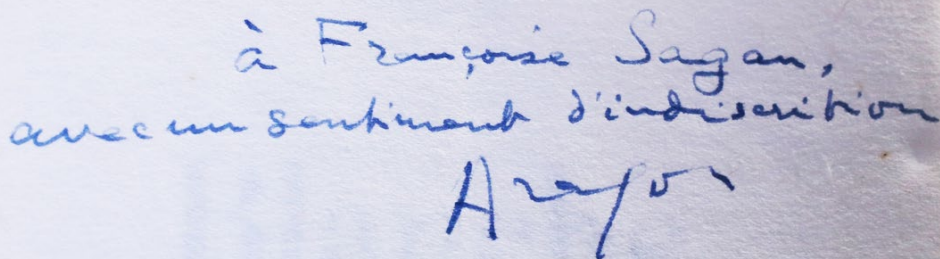 à Françoise Sagan,
avec un sentiment d'indiscrétion
Aragon